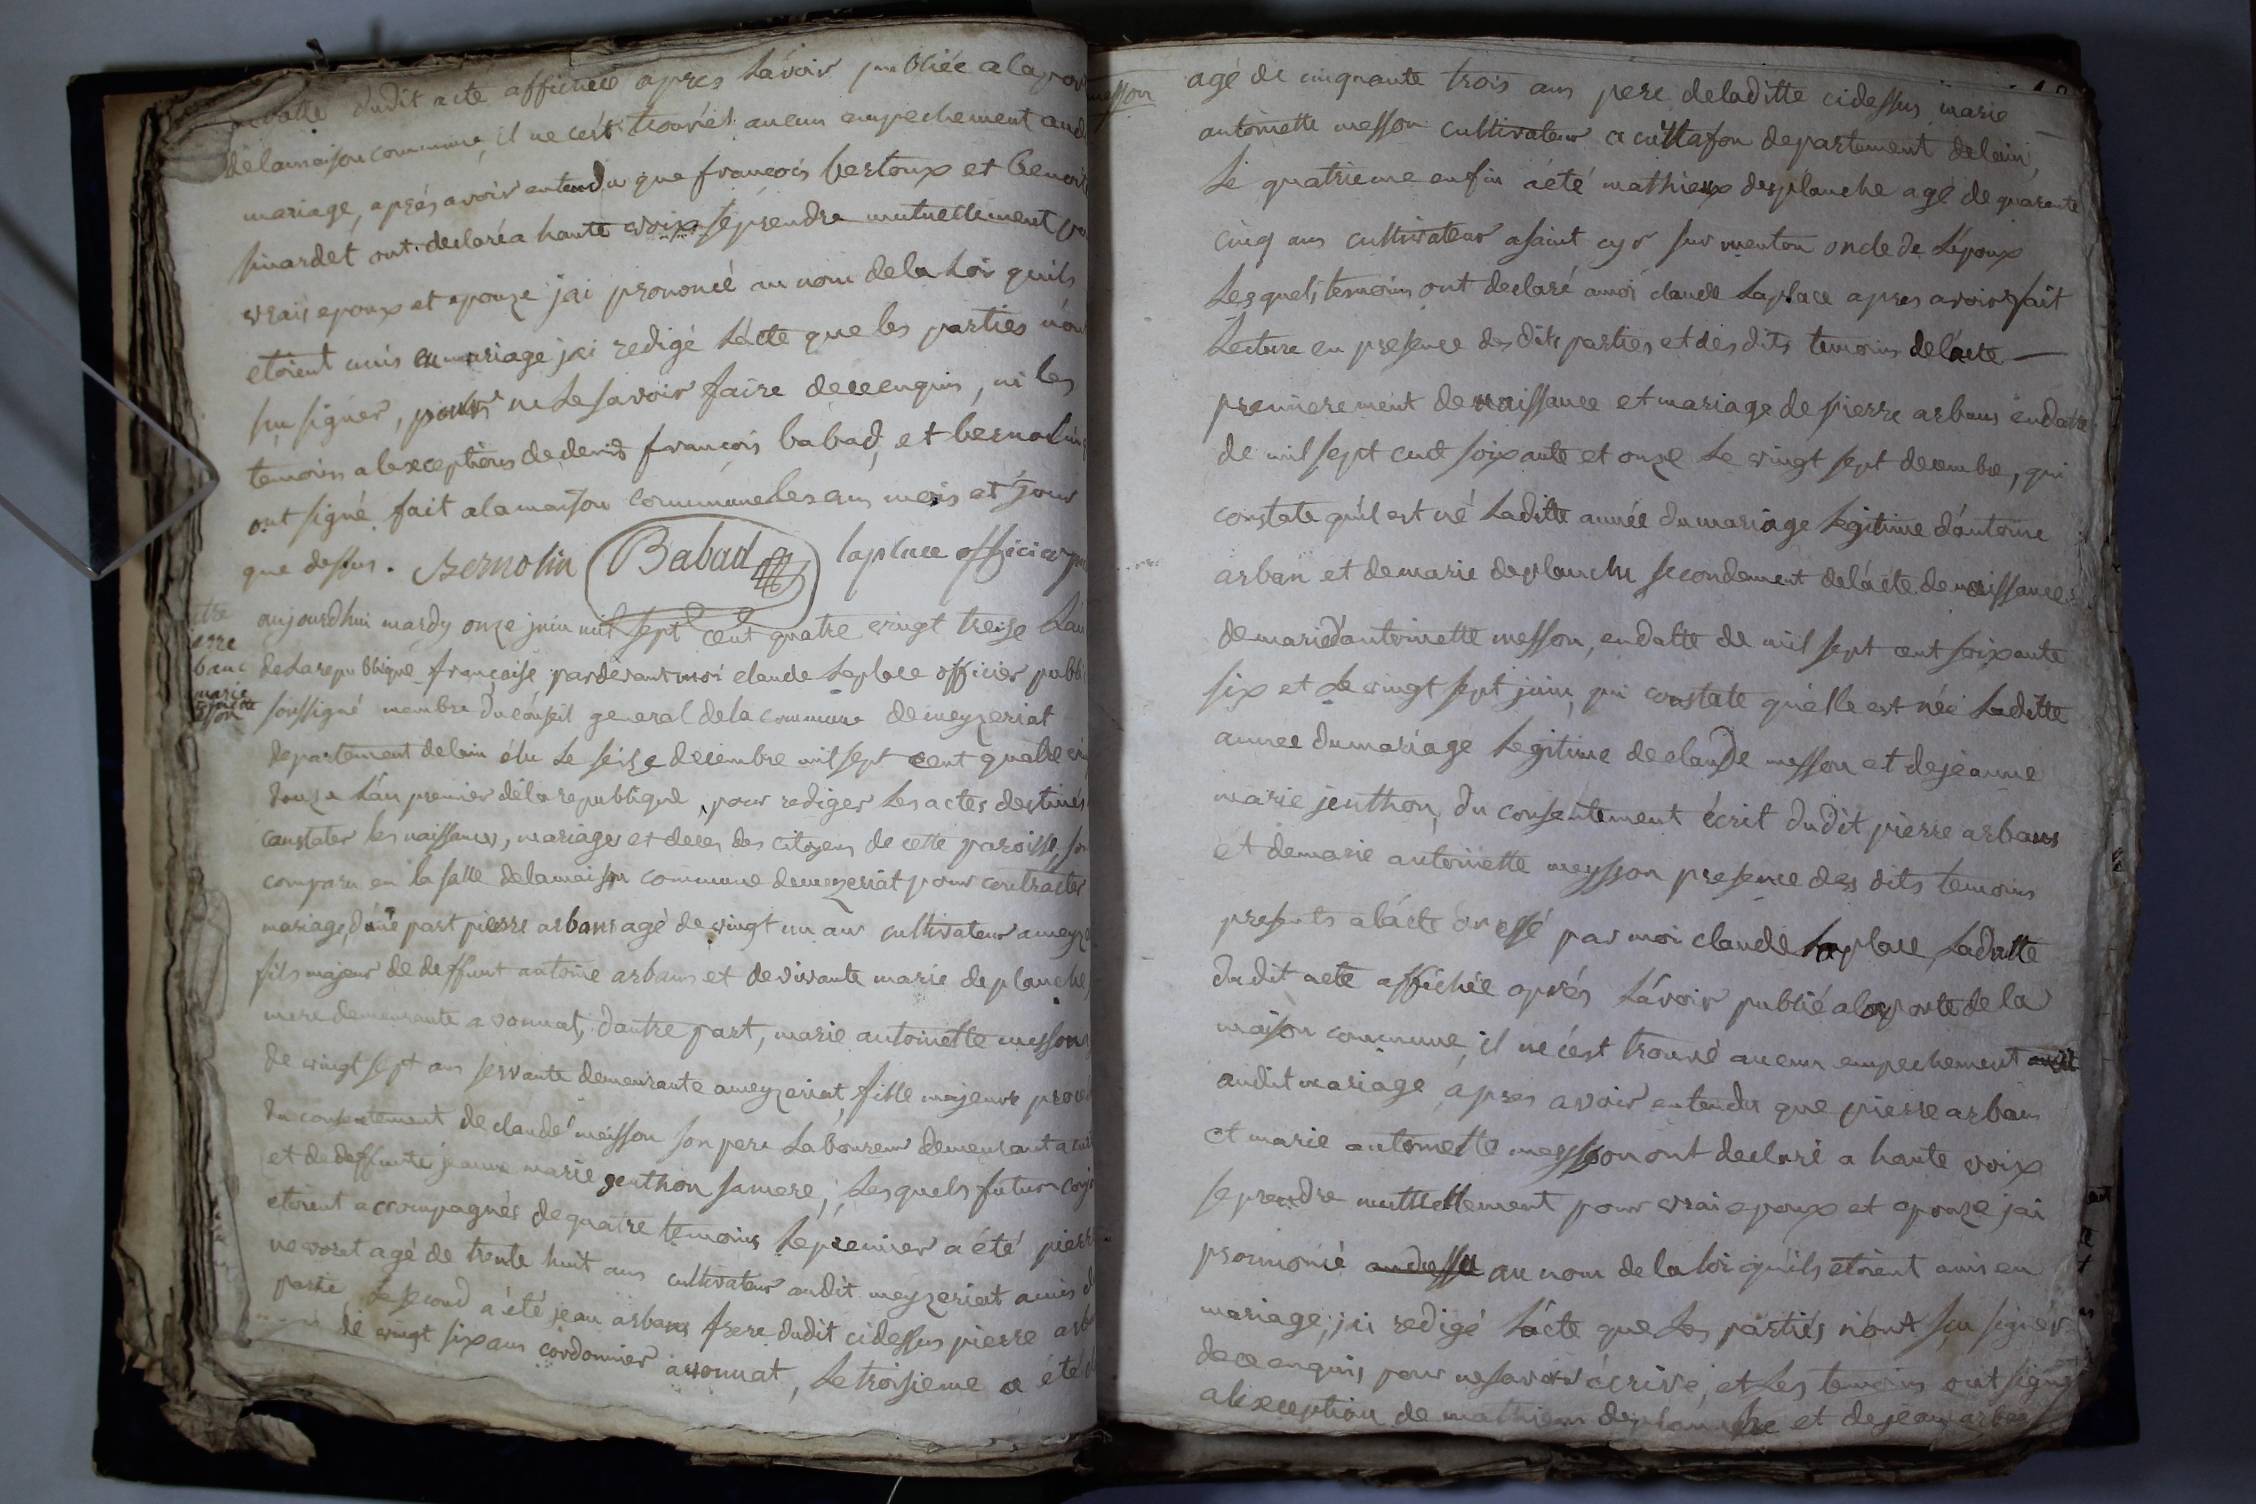 datte dudit acte affichée apres Lávoir publiée a la por
de la maison commune, il ne cést trouvés aucun empechement aud
mariage, aprés avoir entendu que francois bertoux et benoite
sinardet ont declaré a haute voix se prendre mutuellement po
vrais epoux et epouze jai prononcé au nom de la Loi quils
etoient unis en mariage jai redigé Lácte que les parties nón
su signer, pour ne Le savoir faire de ce enquis, ni les
temoins a lexceptions de denis françois babad, et bernolin q
ont signé fait a la maison commune les an mois et jour
que dessus. Bernolin Babad laplace officier pu
aujourdhui mardy onze juin mil sept cent quatre vingt treise Lan
de La republique française pardevant moi claude Laplace officier publi
soussigné membre du cónseil general de la commune de meyzeriat
departement de lain élu Le seise decembre mil sept cent quatre vin
douze Lán premier de la republique, pour rediger Les actes destinés
constater les naissances, mariages et deces des citoyens de cette paroisse, son
comparu en la salle de la maison commune de mezeriat pour contracter
mariage, dúne part pierre arbans agé de vingt un ans cultivateur a meyze
fils majeur de deffunt antoine arbans et de vivante marie deplanche,
mere demeurante a vonnat, dautre part, marie antoinette messon
de vingt sept ans servante demeurante a meyzeriat, fille majeure
du consentement de claude meisson son pere Laboureur demeurant a
et de deffunte jeanne marie genthon sa mere, Lesquels futurs conjo
etoient accompagnés de quatre temoins Le premier a été pierre
agé de trente huit ans cultivateur audit meyzeriat amis d
partie Le second a été jean arbans frere dudit cidessus pierre arb
de vingt six ans cordonnier a vonnat, Le troisieme a été
erre
banc
marie
toinette
esson
messon
agé de cinquante trois ans pere de laditte cidessus marie
antoinette messon cultivateur a departement de lain
Le quatrieme enfin a été mathieux desplanche agé de quarante
cinq ans cultivateur a saint cyr sur menton oncle de Lépoux
Lesquels temoins ont declaré a moi claude Laplace apres avoir fait
Lecture en presence des dits parties et des dits temoins de lácte —
premierement de naissance et mariage de pierre arbans en datte
de mil sept cent soixante et onze Le vingt sept decembre, qui
constate quil est né Laditte année du mariage Legitime dántoine
arban et de marie deplanche secondement de lácte de naissance
de marie dantoinette messon, en datte de mil sept cent soixante
six et Le vingt sept juin, qui constate quélle est née Laditte
annee du mariage Legitime de claude messon et de jeanne
marie jenthon, du consentement écrit dudit pierre arbans
et de marie antoinette meysson presence des dits temoins
presents a lácte dressé par moi claude Laplace, La datte
dudit acte affichée aprés Lávoir publié a la porte de la
maison commune, il ne cést trouvé aucun empechement
audit mariage apres avoir entendu que pierre arbans
et marie antoinette messon ont declaré a haute voix
se prendre mutuellement pour vrai epoux et epouze jai
prononcé au nom de la loi quils etoient unis en
mariage, jai redigé Lácte que Les partiés nónt su signér
de ce enquis, pour ne savoir écrire, et Les temoins ont signé
a lexception de mathieu deplanche et de jean arban